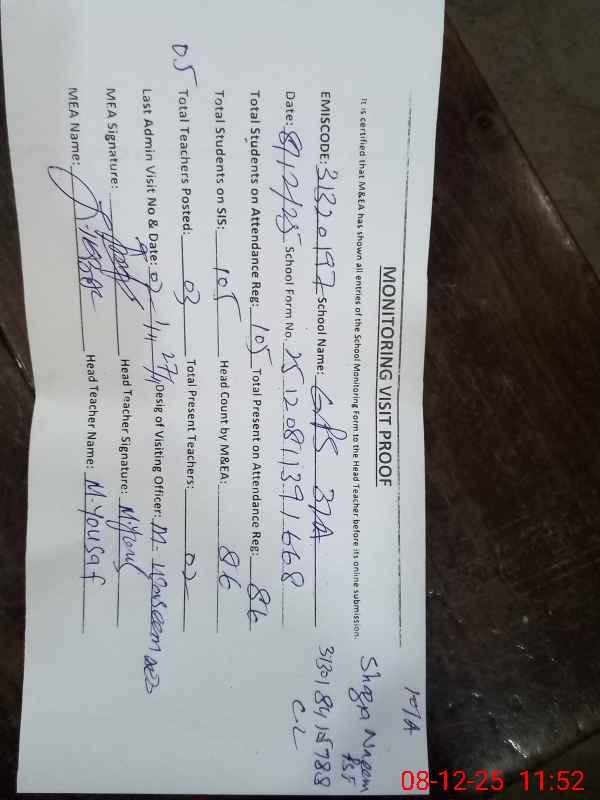 101A
MONITORING VISIT PROOF
It is certified that M&EA has shown all entries of the School Monitoring Form to the Head Teacher before its online submission.
Naeem
PST
EMISCODE: 31320197 School Name: GPS 37A
CL
Date: 8/12/25 School Form No. 2512081139 1668
Total Students on Attendance Reg: 105 Total Present on Attendance Reg: 86
Total Students on SIS: 105 Head Count by M&EA: 86
05 Total Teachers Posted: 03 Total Present Teachers: 02
Last Admin Visit No & Date: Desig of Visiting Officer: M- Waseem
MEA Signature: Head Teacher Signature:
MEA Name: Head Teacher Name: M. Yousaf
08-12-25 11:52